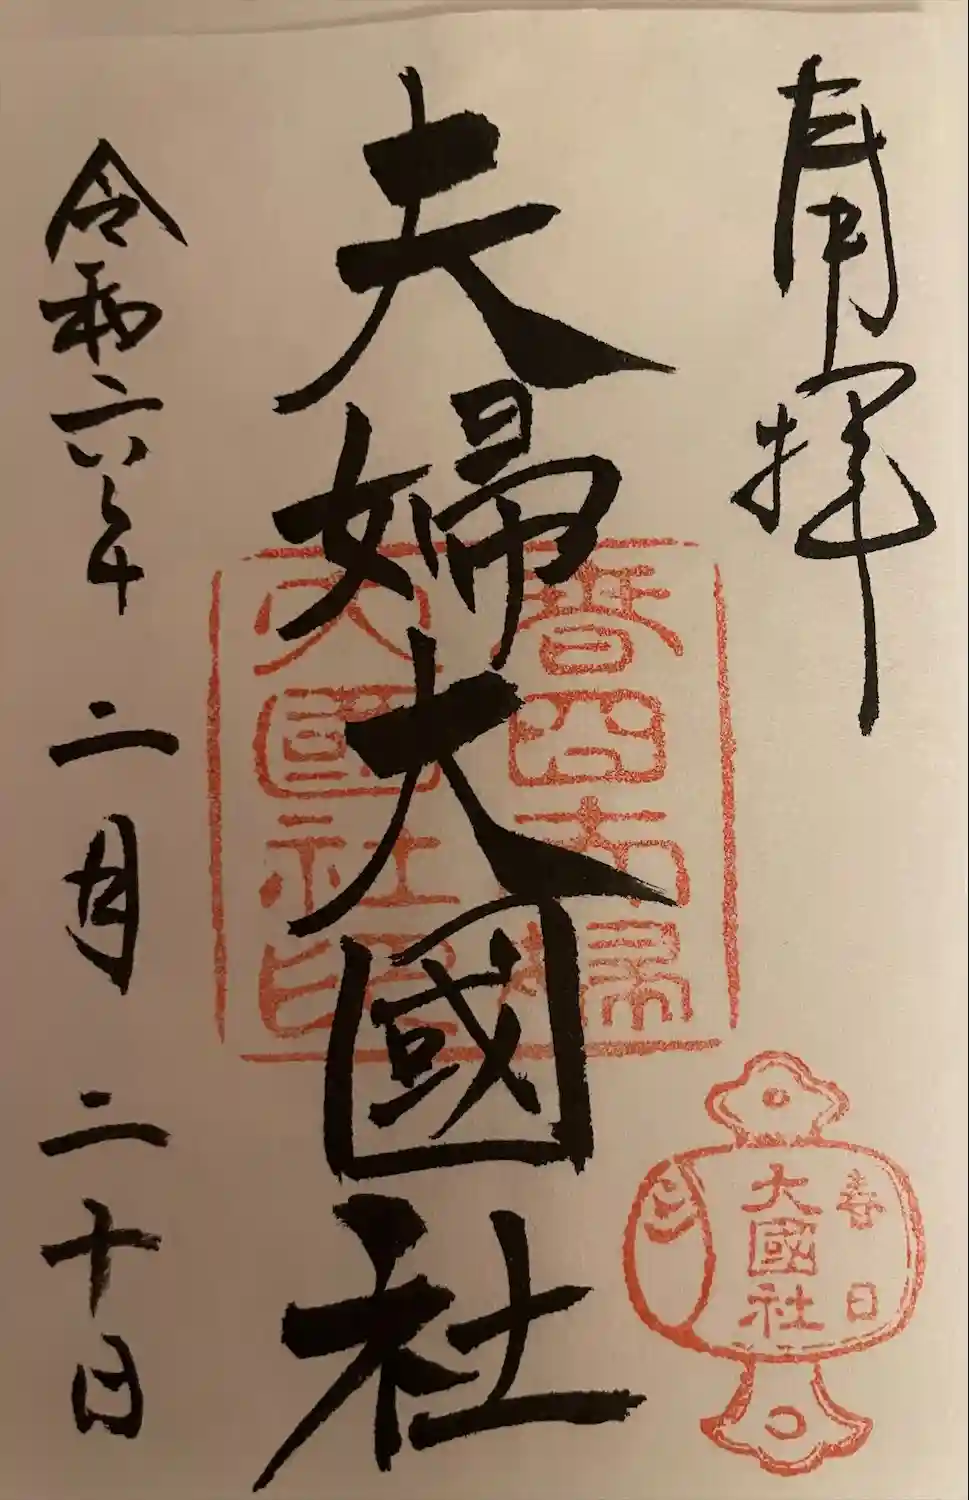 奉拝
夫婦大國社
春日夫婦
大國社印
春日
大國社
令和六年 二月 二十日